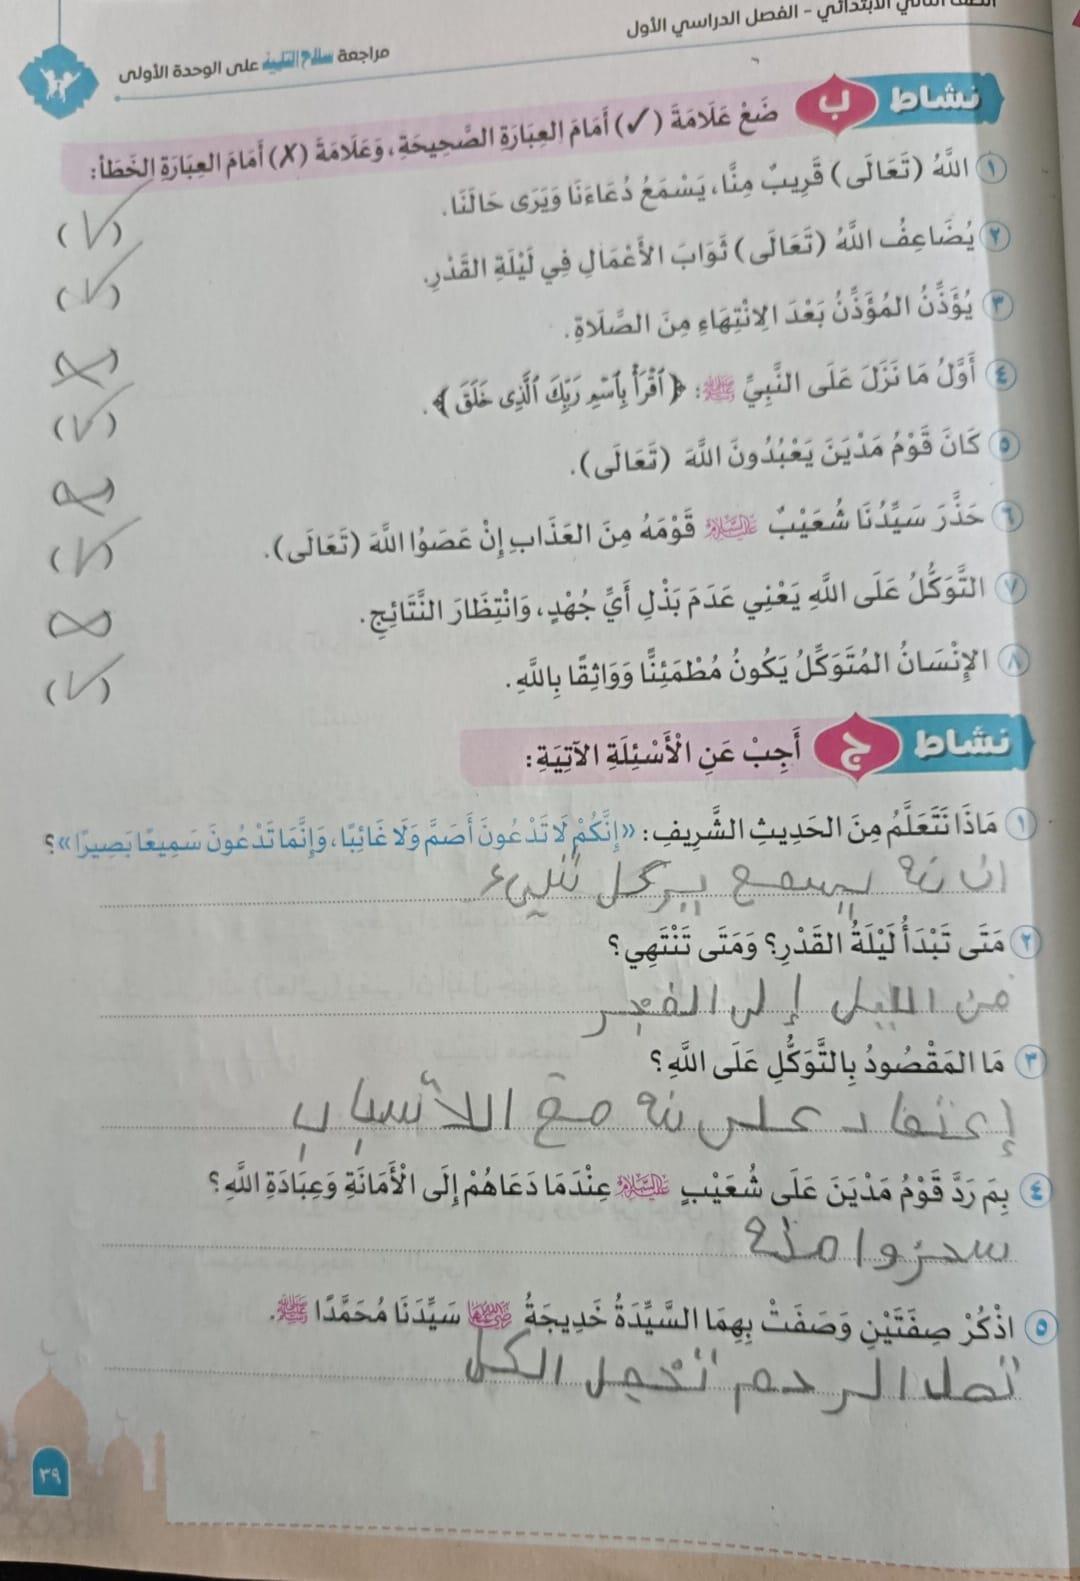 الابتدائي - الفصل الدراسي الأول
مراجعة سلاح التلميذ على الوحدة الأولى
نشاط ب ضَعْ عَلَامَةَ (✓) أَمَامَ العِبَارَةِ الصَّحِيحَةِ، وَعَلَامَةَ (✗) أَمَامَ العِبَارَةِ الخَطَأ:
١ اللَّهُ (تَعَالَى) قَرِيبٌ مِنَّا، يَسْمَعُ دُعَاءَنَا وَيَرَى حَالَنَا. (✓)
٢ يُضَاعِفُ اللَّهُ (تَعَالَى) ثَوَابَ الأَعْمَالِ فِي لَيْلَةِ القَدْرِ. (✓)
٣ يُؤَذِّنُ المُؤَذِّنُ بَعْدَ الِانْتِهَاءِ مِنَ الصَّلَاةِ. (✗)
٤ أَوَّلُ مَا نَزَلَ عَلَى النَّبِيِّ ﷺ: ﴿ ٱقْرَأْ بِٱسْمِ رَبِّكَ ٱلَّذِى خَلَقَ ﴾. (✓)
٥ كَانَ قَوْمُ مَدْيَنَ يَعْبُدُونَ اللَّهَ (تَعَالَى). (✗)
٦ حَذَّرَ سَيِّدُنَا شُعَيْبٌ عليه السلام قَوْمَهُ مِنَ العَذَابِ إِنْ عَصَوُا اللَّهَ (تَعَالَى). (✓)
٧ التَّوَكُّلُ عَلَى اللَّهِ يَعْنِي عَدَمَ بَذْلِ أَيِّ جُهْدٍ، وَانْتِظَارَ النَّتَائِجِ. (✗)
٨ الإِنْسَانُ المُتَوَكِّلُ يَكُونُ مُطْمَئِنًّا وَوَاثِقًا بِاللَّهِ. (✓)
نشاط ج أَجِبْ عَنِ الْأَسْئِلَةِ الآتِيَةِ:
١ مَاذَا نَتَعَلَّمُ مِنَ الحَدِيثِ الشَّرِيفِ: «إِنَّكُمْ لَا تَدْعُونَ أَصَمَّ وَلَا غَائِبًا، وَإِنَّمَا تَدْعُونَ سَمِيعًا بَصِيرًا»؟
يسمع كل شيء
٢ مَتَى تَبْدَأُ لَيْلَةُ القَدْرِ؟ وَمَتَى تَنْتَهِي؟
من الليل إلى الفجر
٣ مَا المَقْصُودُ بِالتَّوَكُّلِ عَلَى اللَّهِ؟
على مع الأسباب
٤ بِمَ رَدَّ قَوْمُ مَدْيَنَ عَلَى شُعَيْبٍ عليه السلام عِنْدَمَا دَعَاهُمْ إِلَى الْأَمَانَةِ وَعِبَادَةِ اللَّهِ؟
سخروا منه
٥ اذْكُرْ صِفَتَيْنِ وَصَفَتْ بِهِمَا السَّيِّدَةُ خَدِيجَةُ رضي الله عنها سَيِّدَنَا مُحَمَّدًا ﷺ.
تصل الرحم تحمل الكل
٣٩